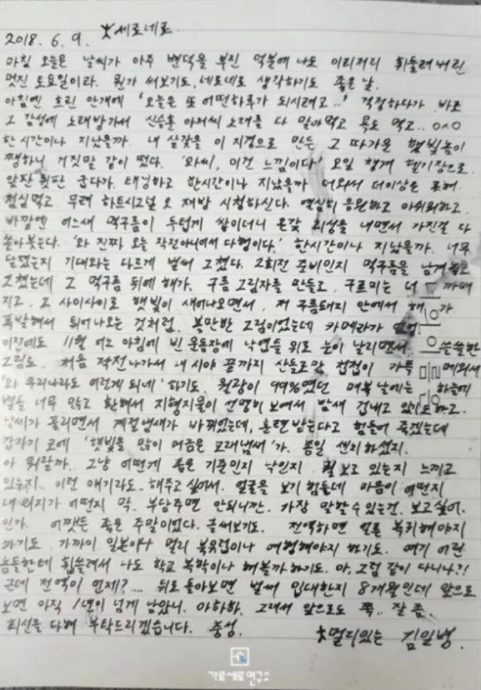 2018. 6. 9. 大세로네로
마침 오늘은 날씨가 아주 변덕을 부린 덕분에 나도 이리저리 휘둘려버린
멋진 토요일이라. 뭔가 써보기도, 세로네로 생각하기도 좋은 날.
아침엔 흐린 안개에 '오늘은 또 어떤하루가 되시려고...' 걱정하다가 바로
그 감성에 노래방가서 신승훈 아저씨 노래를 다 잡아먹고 목도 먹고.. 0ㅅ0
한 시간이나 지났을까. 내 살갗을 이 지경으로 만든 그 따가운 햇빛놈이
쨍하니 거짓말 같이 떴다. '와씨, 이건 느낌이다' 오일 챙겨 헬기장으로.
앞판 뒷판 굽다가. 태닝하고 한시간이나 지났을까 더와서 더이상은 포기.
현실먹고. 무려 하트시그널 2 재방 시청하신다. 열심히 응원하고 아쉬워하고.
바깥엔 어느새 먹구름이 두텁게 쌓이더니 온갖 괴성을 내면서 가진걸 다
쏟아붓는다. '와 진짜 오늘 작전아니어서 다행이다.' 한시간이나 지났을까. 너무
달렸는지 기대와는 다르게 벌써 그쳤다. 2회전 준비인지 먹구름을 남겨놓고
그쳤는데 그 먹구름 뒤에 해가. 구름 그림자를 만들고. 구르미는 더 까매
지고. 그 사이사이로 햇빛이 새어나오면서, 저 구름돼지 안에서 해가
폭발해서 튀어나오는 것처럼. 볼만한 그림이었는데 카메라가 없었
이밖에도 11월 어느 아침에 빈 운동장에 낙엽들 위로 눈이 날리면서. 쓸쓸한
그림도. 처음 작전나가서 내 시야 끝까지 산등로만 첩첩이 가득 메워서
'와 우리나라도 이렇게 되네' 하기도. 월광이 99%였던 매복 날에는 하늘에
별들 너무 많고 환해서 지형지물이 선명히 보여서 밤새 겁내고 있기도 하고.
날씨가 풀리면서 계절냄새가 바뀌었는데, 훈련받는다고 힘들어 죽겠는데
갑자기 코에 '햇빛을 많이 머금은 모래냄새'가. 종일 센치하셨지.
아 뭐랄까. 그냥 어떻게 좋은 기준인지 낙인지 뭘 보고 있는지 느끼고
있는지.. 이런 얘기라도. 해주고 싶어서. 얼굴을 보기 힘든데 마음이 어떤지
내 의지가 어떤지 막. 부담주면 안되니깐. 가장 말할수 있는건. 보고싶어.
인가. 어쨋든 좋은 주말이었다. 글써보기도. 전역하면 얼른 복귀해야지
하기도. 가까이 일본이나 멀리 북유럽이나 여행해야지 하기도. 여기 어린
놈들한테 휩쓸려서 나도 학교 복학이나 해볼까하기도. 아, 그럼 같이 다니나?!
근데 전역이 언제?.... 뒤로 돌아보면 벌써 입대한지 8개월인데 앞으로
보면 아직 1년이 넘게 남았니. 아하하. 그래서 앞으로도 쭉.. 잘 좀.
최선을 다해 부탁드리겠습니다. 충성.
大멀리있는 김일병.
가로세로연구소